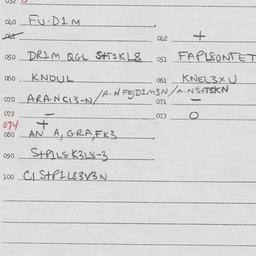 032
040 FU·D1M
041
042 +
050 DR1M QGL S+T1KL8 051 FAPL8ONTET
060 KNDUL 061 KNEL3XU
070 ARANC13-N/A·NFEJD1M3N/A·NS+T8KN
071 —
072 — 073 O
074 +
080 AN A,GRA,FK3
090 S+P1L8K3L8-3
100 C1S+P1L83V3N